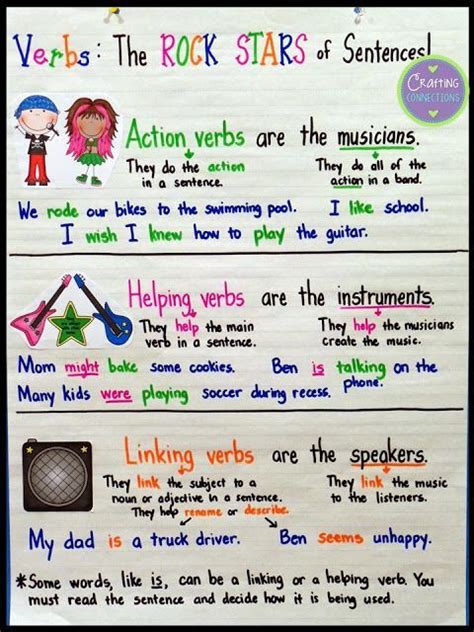 Verbs: The ROCK STARS of Sentences!
Crafting
CONNECTIONS
Action verbs are the musicians.
They do the action
in a sentence.
They do all of the
action in a band.
We rode our bikes to the swimming pool. I like school.
I wish I knew how to play the guitar.
Helping verbs are the instruments.
They help the main
verb in a sentence.
They help the musicians
create the music.
Mom might bake some cookies. Ben is talking on the
phone.
Many kids were playing soccer during recess.
Linking verbs are the speakers.
They link the subject to a
noun or adjective in a sentence.
They help rename or describe.
They link the music
to the listeners.
My dad is a truck driver. Ben seems unhappy.
*Some words, like is, can be a linking or a helping verb. You
must read the sentence and decide how it is being used.